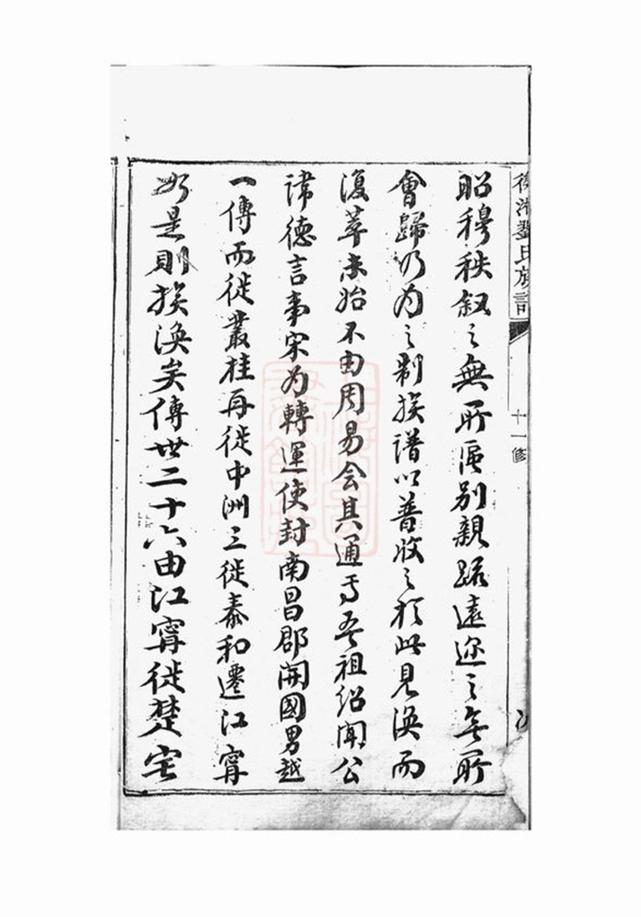 昭穆秩叙之無所區別親疎遠迩之無所
會歸乃为之制族譜以普收之於此見渙而
復萃未始不由周易会其通也吾祖绍聞公
諱德言事宋为轉運使封南昌郡開國男越
一傳而徙叢桂再徙中洲三徙泰和遷江甯
如是則族渙矣傳世二十六由江甯徙楚宅
氏族
十一修